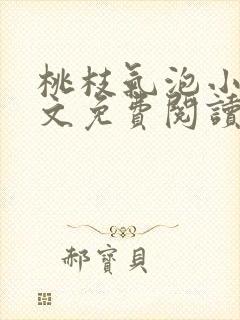 桃枝氣泡小
文免費閱讀
郝寶貝